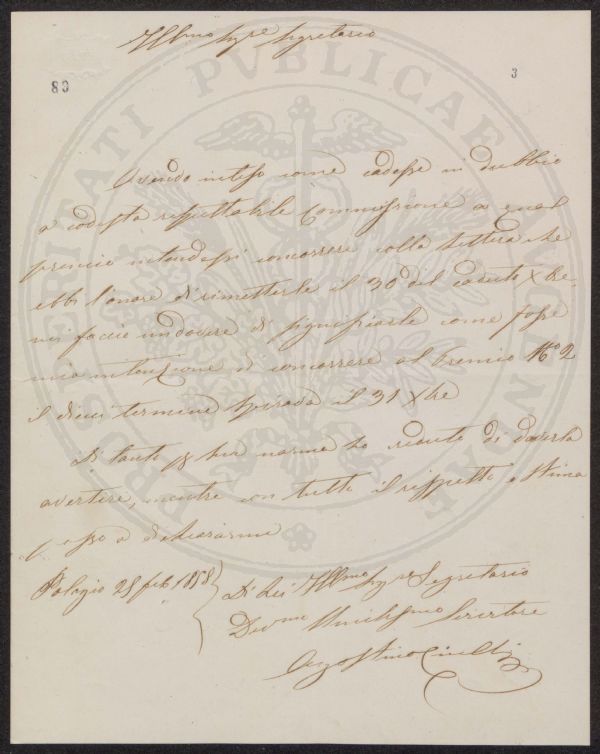 Illmo Sigre Segretario
83
3
Avendo inteso come cadesse in dubbio
a codesta rispettabile Commissione a qual
premio intendessi concorrere colla Lettera che
ebbi l'onore di rimetterle il 30 del caduto Xbre,
mi faccio un dovere di significarle come fosse
mia intenzione di concorrere al Premio No 2
il di cui termine spirava il 31 Xbre
Di tanto per sua norma ho creduto di doverla
avertire, mentre con tutto il rispetto e stima
passo a dichiararmi
Bologna 25 feb. 1858
Di Lei Illmo Sigre Segretario
Devmo Umilissmo Servitore
Agostino
PROSPERITATI PVBLICAE AVGENDAE